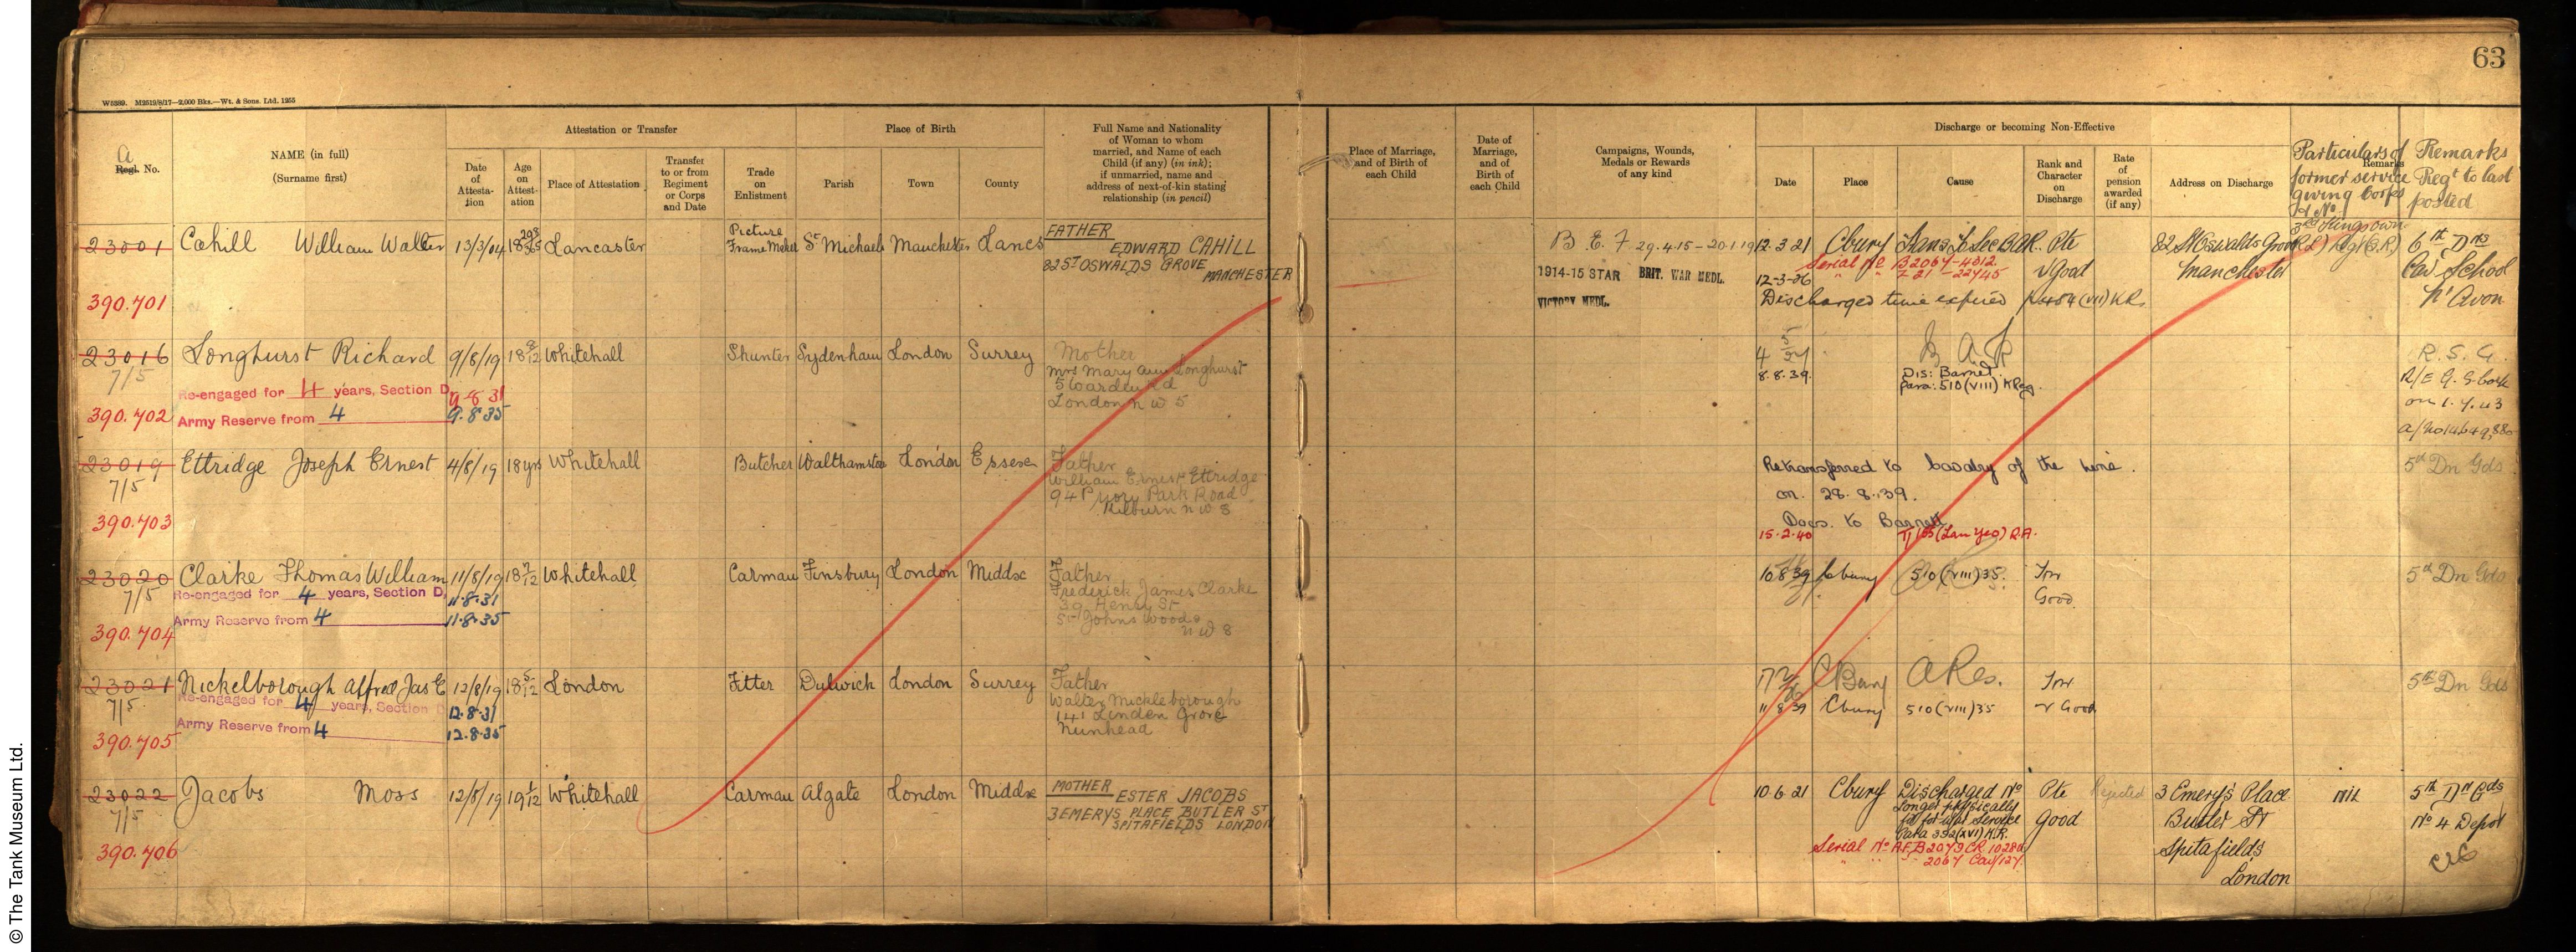 63
W5389. M2519/8/17—2,000 Bks.—Wt. & Sons. Ltd. 1255
a
Regl. No.
NAME (in full)
(Surname first)
Attestation or Transfer
Date of Attestation
Age on Attestation
Place of Attestation
Transfer to or from Regiment or Corps and Date
Trade on Enlistment
Place of Birth
Parish
Town
County
Full Name and Nationality of Woman to whom married, and Name of each Child (if any) (in ink); if unmarried, name and address of next-of-kin stating relationship (in pencil)
Place of Marriage, and of Birth of each Child
Date of Marriage, and of Birth of each Child
Campaigns, Wounds, Medals or Rewards of any kind
Discharge or becoming Non-Effective
Date
Place
Cause
Rank and Character on Discharge
Rate of pension awarded (if any)
Address on Discharge
Remarks
Particulars of former service giving Corps & No
Remarks Regt to last posted
23001 Cahill William Walter 13/3/04 18 Lancaster Picture Frame Maker St Michaels Manchester Lancs
FATHER
EDWARD CAHILL
82 ST OSWALDS GROVE
MANCHESTER
B. E. F 29.4.15 – 20.1.19
1914-15 STAR BRIT. WAR MEDL.
VICTORY MEDL.
12.3.21 Cbury Trans to Sec B AR. Pte
Serial No B2067-4312
12-3-26 V Good
Discharged time expired KR.
82 St Oswalds Grove
Manchester
6th Dns
Cav School
N'Avon
390.701
23016 Longhurst Richard 9/8/19 18 8/12 Whitehall Shunter Sydenham London Surrey
7/5
Mother
Mrs Mary Ann Longhurst
London N W 5
Re-engaged for 4 years, Section D, 9-8-31
390.702 Army Reserve from 4 9.8.35
8.8.39. Dis: Barnet.
para: 510 (VIII) K Reg.
R. S. G.
on 1.4.43
23019 Ettridge Joseph Ernest 4/8/19 18 yrs Whitehall Butcher Walthamstow London Essex
7/5
Father
William Ernest Ettridge
94 Priory Park Road
Kilburn N W 8
390.703
Retransferred to Cavalry of the Line.
on. 28. 8. 39.
Docs. to Barnett
15.2.40 (Lan Yeo) R.A.
5th Dn Gds
23020 Clarke Thomas William 11/8/19 18 7/12 Whitehall Carman Finsbury London Middx
7/5
Father
Frederick James Clarke
39 Henry St
St Johns Wood
N W 8
Re-engaged for 4 years, Section D, 11.8.31
Army Reserve from 4 11.8.35
390.704
10.8.39 Cbury 510 (VIII) 35. Tpr
Good
5th Dn Gds
23021 Mickelborough Alfred Jas E 12/8/19 18 5/12 London Fitter Dulwich London Surrey
7/5
Father
Walter Mickleborough
141 Linden Grove
Nunhead
Re-engaged for 4 years, Section D 12.8.31
Army Reserve from 4 12.8.35
390.705
CBury A Res. Tpr
11 8 39 Cbury 510 (VIII) 35 V Good
5th Dn Gds
23022 Jacobs Moss 12/8/19 19 1/12 Whitehall Carman Algate London Middx
7/5
MOTHER
ESTER JACOBS
3 EMERYS PLACE BUTLER ST
SPITAFIELDS LONDON
390.706
10.6.21 Cbury Discharged No longer physically fit for War Service Para 392 (XVI) K.R. Pte Good
Rejected
Serial No A.F.B 2079 CR 10280
2067 Cav/127.
3 Emery's Place
Butler St
Spitafields
London
Nil
5th Dn Gds
No 4 Depot
© The Tank Museum Ltd.